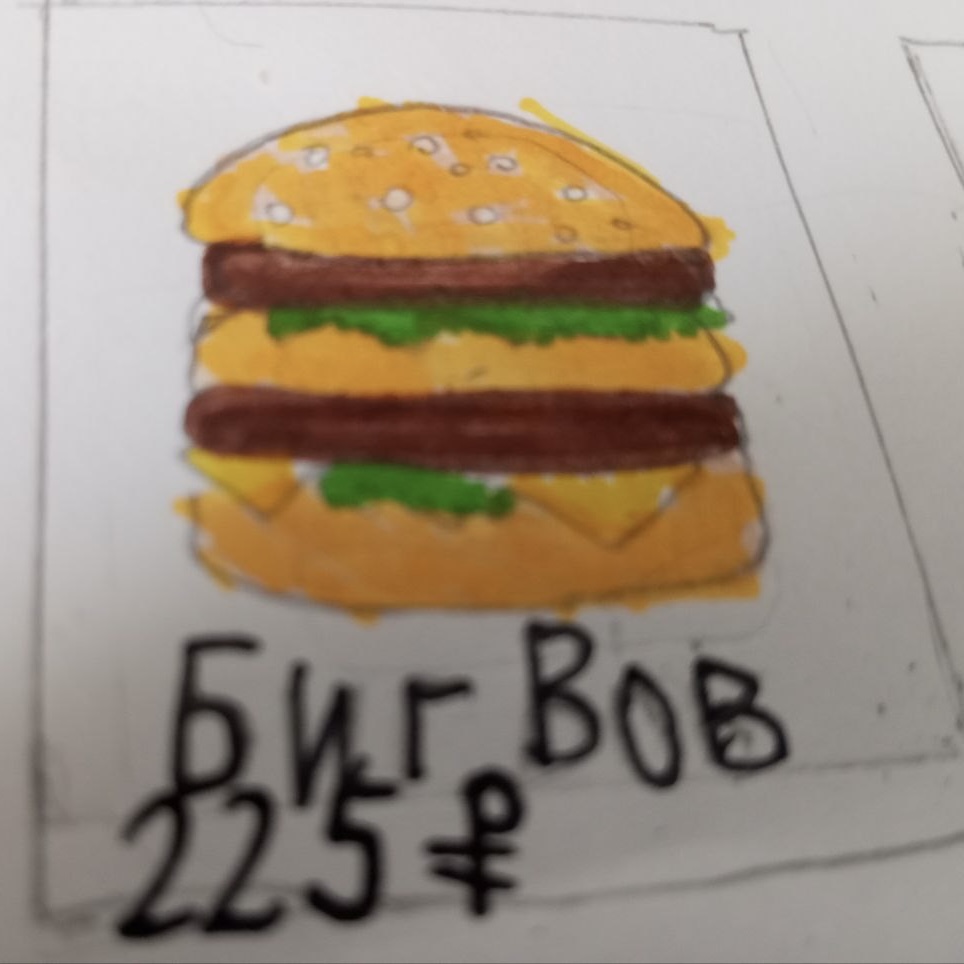 Биг Вов
225 ₽